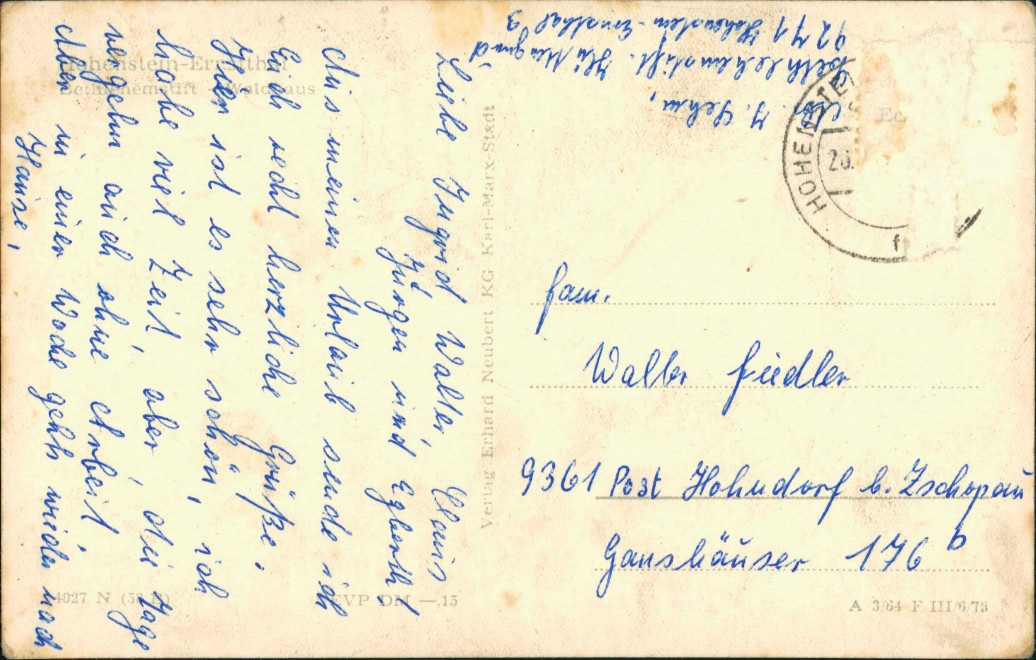 Hohenstein-Ernstthal
Bethlehemstift - Waldhaus
Liebe Ingrid Walter
Jürgen und Egberth!
Aus meinen Urlaub sende ich
Euch recht herzliche Grüße.
Hier ist es sehr schön, ich
habe viel Zeit, aber die Tage
vergehn auch ohne Arbeit.
Aber in einer Woche gehts wieder nach
Hause,
4027 N
EVP DM —,15
Verlag Erhard Neubert KG Karl-Marx-Stadt
Bethlehemstift Hüttengrund
9271 Hohenstein-Ernstthal 3
HOHENSTE
f
Fam.
Walter Fiedler
9361 Post Hohndorf b. Zschopau
Ganshäuser 176 b
A 3/64 F III/6/75